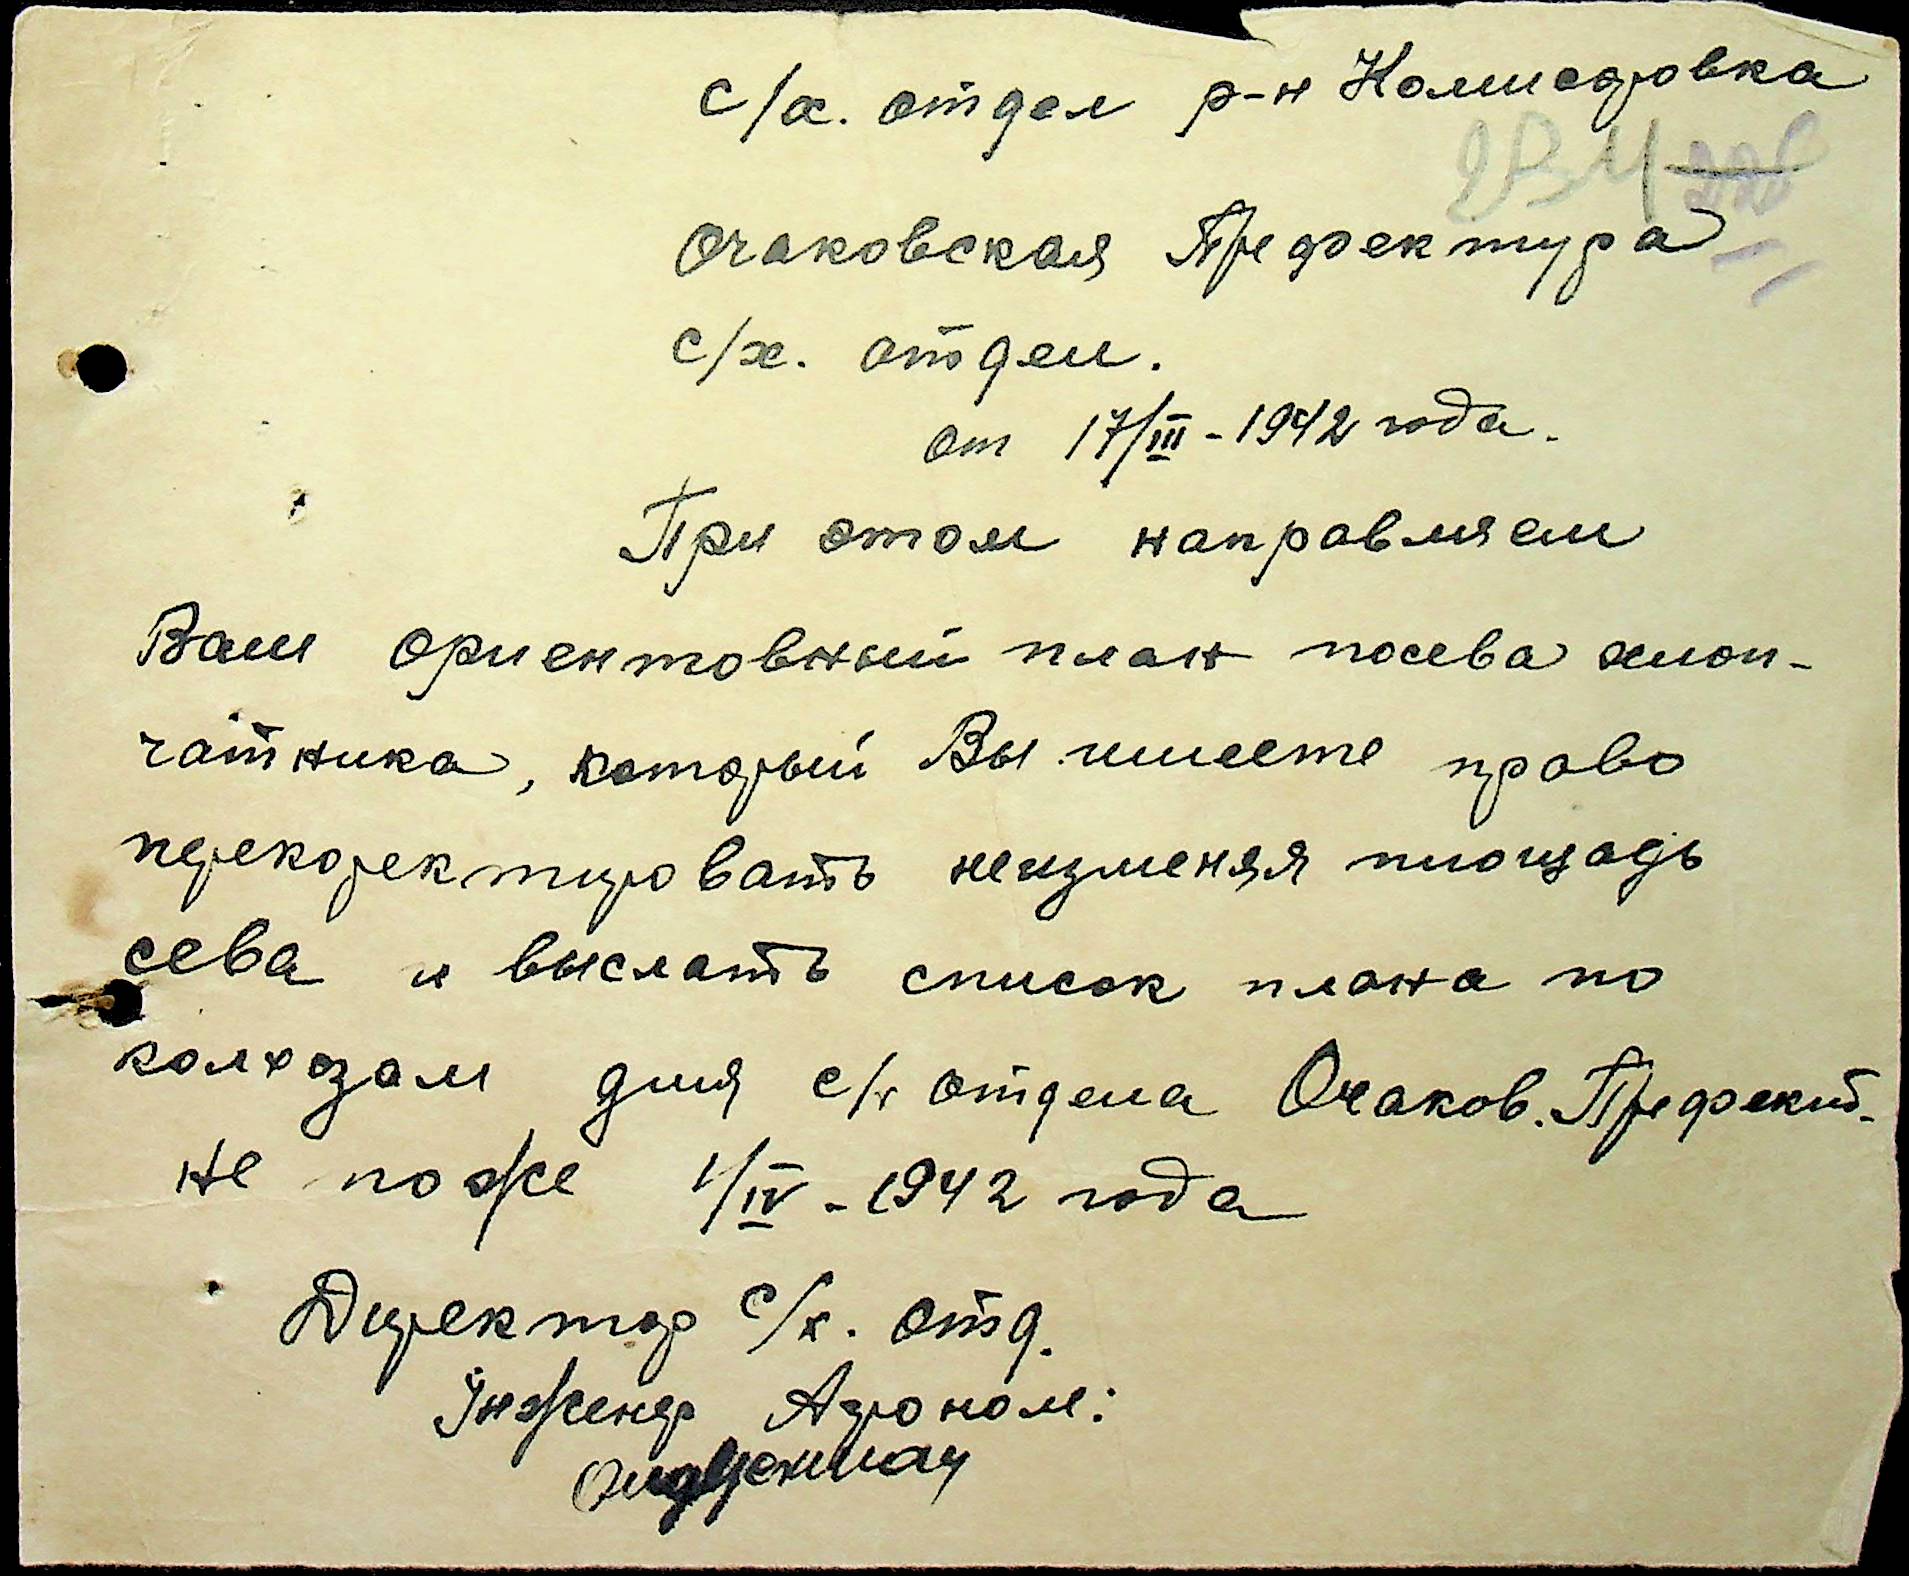 с/х. отдел р-н Колисоровка
234 228
Очаковская Префектура
с/х. отдел.
от 17/III - 1942 года.
При этом направляем
Вам ориентовный план посева хлоп-
чатника, который Вы имеете право
перекоректировать неизменяя площадь
сева и выслать список плана по
колхозам для с/х отдела Очаков. Префект.
не поже 1/IV - 1942 года
Директор с/х. отд.
Інженер Агроном: